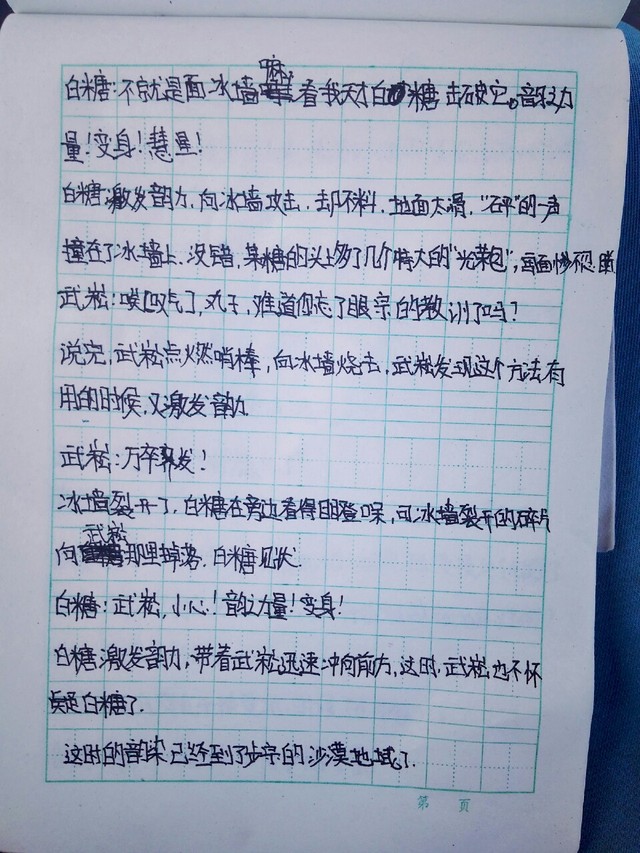 白糖:不就是面冰墙嘛,看我天才白糖击破它。韵之力
量!变身!慧星!
白糖激发韵力,向冰墙攻击,却不料,地面太滑,"石平"的一声
撞在了冰墙上,没错,某糖的头上多了几个特大的"光荣包",画面惨不忍睹
武崧:唉[叹气],丸子,难道你忘了眼宗的教训了吗?
说完,武崧点燃哨棒,向冰墙烧去,武崧发现这个方法有
用的时候,又激发韵力
武崧:万卒齐发!
冰墙裂开了,白糖在旁边看得目瞪口呆,可冰墙裂开的碎片
向武崧那里掉落,白糖见状
白糖:武崧,小心!韵之力量!变身!
白糖激发韵力,带着武崧迅速冲向前方,这时,武崧也不怀
疑白糖了.
这时的韵染已经到了步宗的沙漠地域了.
第 页